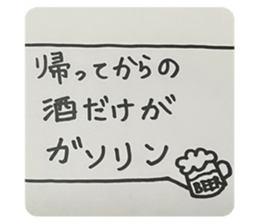 帰ってからの
酒だけが
ガソリン
BEER